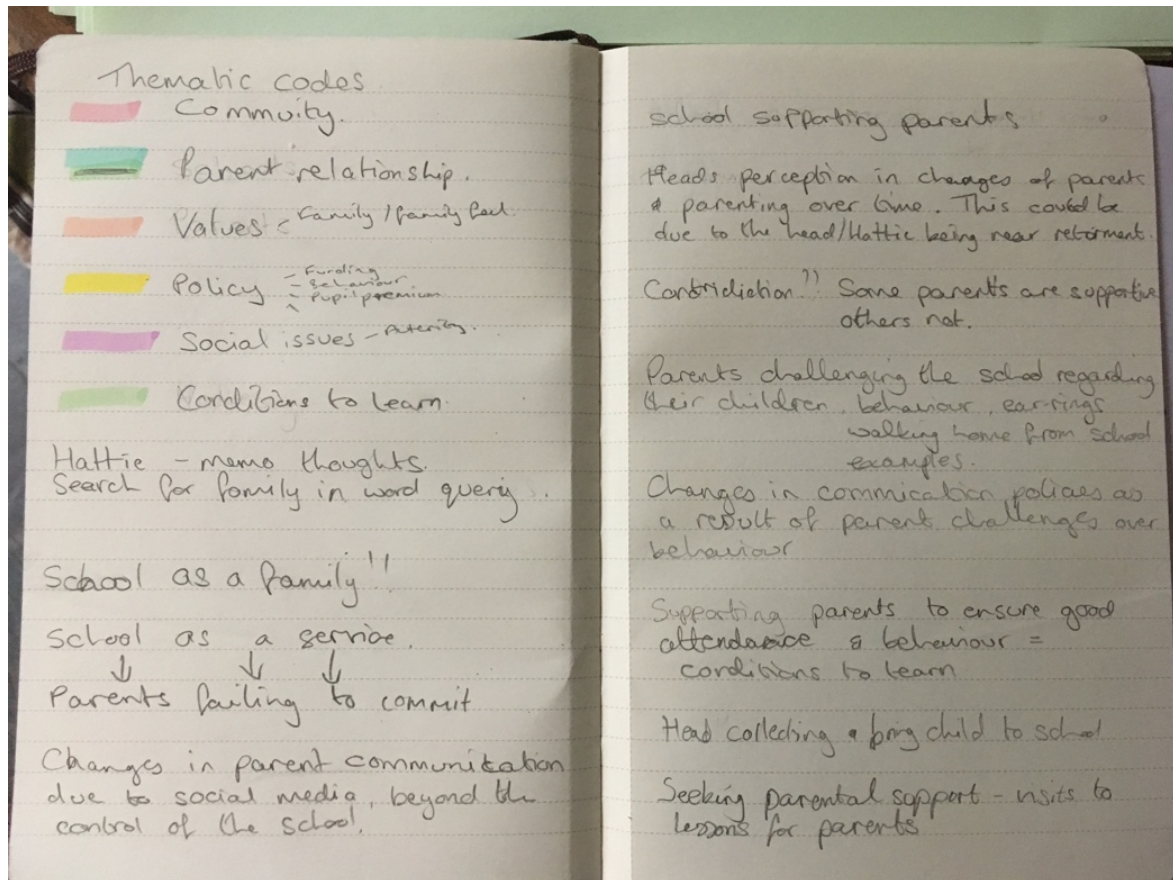 Thematic codes
Commuity.
Parent relationship.
Values - Family / family feel.
Policy - Funding
- Behaviour
- Pupil premium
Social issues - Austerity.
Conditions to learn.
Hattie - memo thoughts.
Search for family in word query.
School as a family !!
School as a service.
↓ ↓ ↓
Parents failing to commit
Changes in parent communication
due to social media, beyond the
control of the school.
school supporting parents
Heads perception in changes of parents
& parenting over time. This could be
due to the head/Hattie being near retirment.
Contridiction?? Some parents are supportive
others not.
Parents challenging the school regarding
their children, behaviour, ear-rings
walking home from school
examples.
Changes in commication policies as
a result of parent challenges over
behaviour
Supporting parents to ensure good
attendance & behaviour =
conditions to learn
Head collecting & bring child to school
Seeking parental support - visits to
lessons for parents